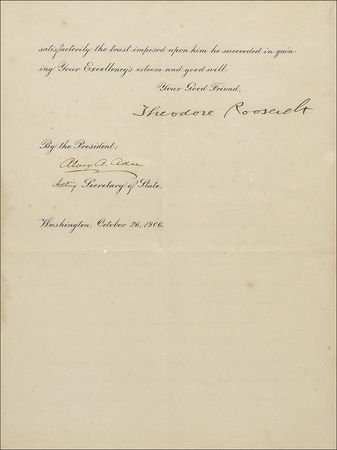 satisfactorily the trust imposed upon him he succeeded in gain-
ing Your Excellency's esteem and good will.
Your Good Friend,
Theodore Roosevelt
By the President:
Alvey A. Adee
Acting Secretary of State.
Washington, October 26, 1906.